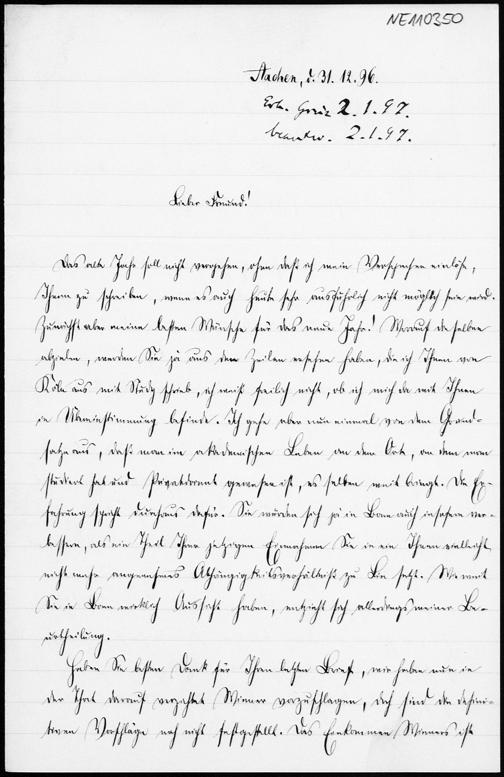 NE110350
Aachen, d. 31. 12. 96.
Erh. Graz 2. 1. 97.
beantw. 2. 1. 97.
Lieber Freund!
Das alte Jahr soll nicht vergehen, ohne daß ich mein Versprechen einlöse,
Ihnen zu schreiben, wenn es auch heute sehr ausführlich nicht möglich sein wird.
Zunächst aber meine besten Wünsche für das neue Jahr! Worauf dieselben
abzielen, werden Sie ja aus den Zeilen ersehen haben, die ich Ihnen von
Köln aus mit Study schrieb, ich weiß freilich nicht, ob ich mich da mit Ihnen
in Übereinstimmung befinde. Ich gehe aber nun einmal von dem Grund-
satze aus, daß man im akademischen Leben an dem Ort, an dem man
studiert hat und Privatdocent gewesen ist, es selten weit bringt. Die Er-
fahrung spricht durchaus dafür. Sie würden sich ja in Bonn auch insofern ver-
bessern, als ein Theil Ihrer jetzigen Einnahmen Sie in ein Ihnen vielleicht
nicht mehr angenehmes Abhängigkeitsverhältniß zu setzt. Wie weit
Sie in Bonn wirklich Aussicht haben, entzieht sich allerdings meiner Be-
urtheilung.
Haben Sie besten Dank für Ihren letzten Brief, wir haben nun in
der That darauf verzichtet Wirner vorzuschlagen, doch sind die defini-
tiven Vorschläge noch nicht festgestellt. Das Einkommen Wirners ist